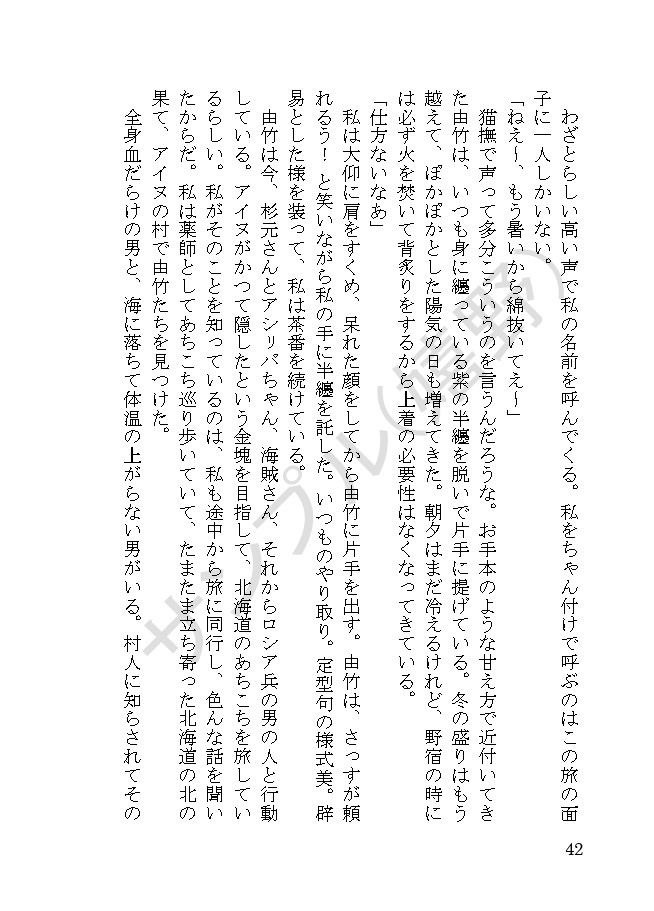 わざとらしい高い声で私の名前を呼んでくる。私をちゃん付けで呼ぶのはこの旅の面
子に一人しかいない。
「ねえ～、もう暑いから綿抜いてえ～」
　猫撫で声って多分こういうのを言うんだろうな。お手本のような甘え方で近付いてき
た由竹は、いつも身に纏っている紫の半纏を脱いで片手に提げている。冬の盛りはもう
越えて、ぽかぽかとした陽気の日も増えてきた。朝夕はまだ冷えるけれど、野宿の時に
は必ず火を焚いて背炙りをするから上着の必要性はなくなってきている。
「仕方ないなあ」
　私は大仰に肩をすくめ、呆れた顔をしてから由竹に片手を出す。由竹は、さっすが頼
れるう！ と笑いながら私の手に半纏を託した。いつものやり取り。定型句の様式美。辟
易とした様を装って、私は茶番を続けている。
　由竹は今、杉元さんとアシリパちゃん、海賊さん、それからロシア兵の男の人と行動
している。アイヌがかつて隠したという金塊を目指して、北海道のあちこちを旅してい
るらしい。私がそのことを知っているのは、私も途中から旅に同行し、色んな話を聞い
たからだ。私は薬師としてあちこち巡り歩いていて、たまたま立ち寄った北海道の北の
果て、アイヌの村で由竹たちを見つけた。
　全身血だらけの男と、海に落ちて体温の上がらない男がいる。村人に知らされてその
42